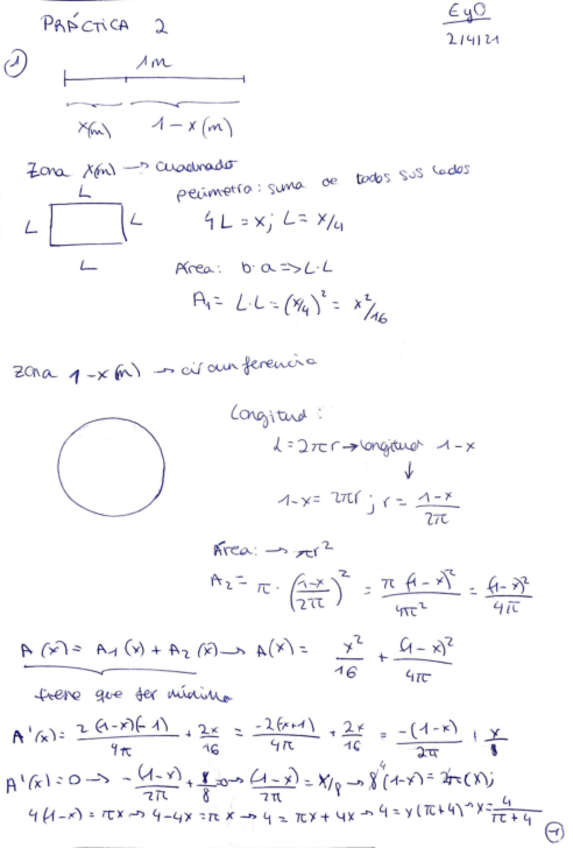 PRÁCTICA 2
EyO
2/4/21
①
1m
x(m) 1-x(m)
Zona x(m) → cuadrado
perímetro: suma de todos sus lados
L
L L
4L = x; L = x/4
L
Área: b·a => L·L
A₁ = L·L = (x/4)² = x²/16
zona 1-x(m) → circunferencia
Longitud:
L = 2πr → longitud 1-x
↓
1-x = 2πr ; r = (1-x)/2π
Área: → πr²
A₂ = π · ((1-x)/2π)² = π(1-x)²/4π² = (1-x)²/4π
A(x) = A₁(x) + A₂(x) → A(x) = x²/16 + (1-x)²/4π
tiene que ser mínimo
A'(x) = 2(1-x)(-1)/4π + 2x/16 = -2(x+1)/4π + 2x/16 = -(1-x)/2π + x/8
A'(x) = 0 → -(1-x)/2π + x/8 = 0 → (1-x)/2π = x/8 → 8⁴(1-x) = 2π(x);
4(1-x) = πx → 4-4x = πx → 4 = πx + 4x → 4 = x(π+4) → x = 4/(π+4)